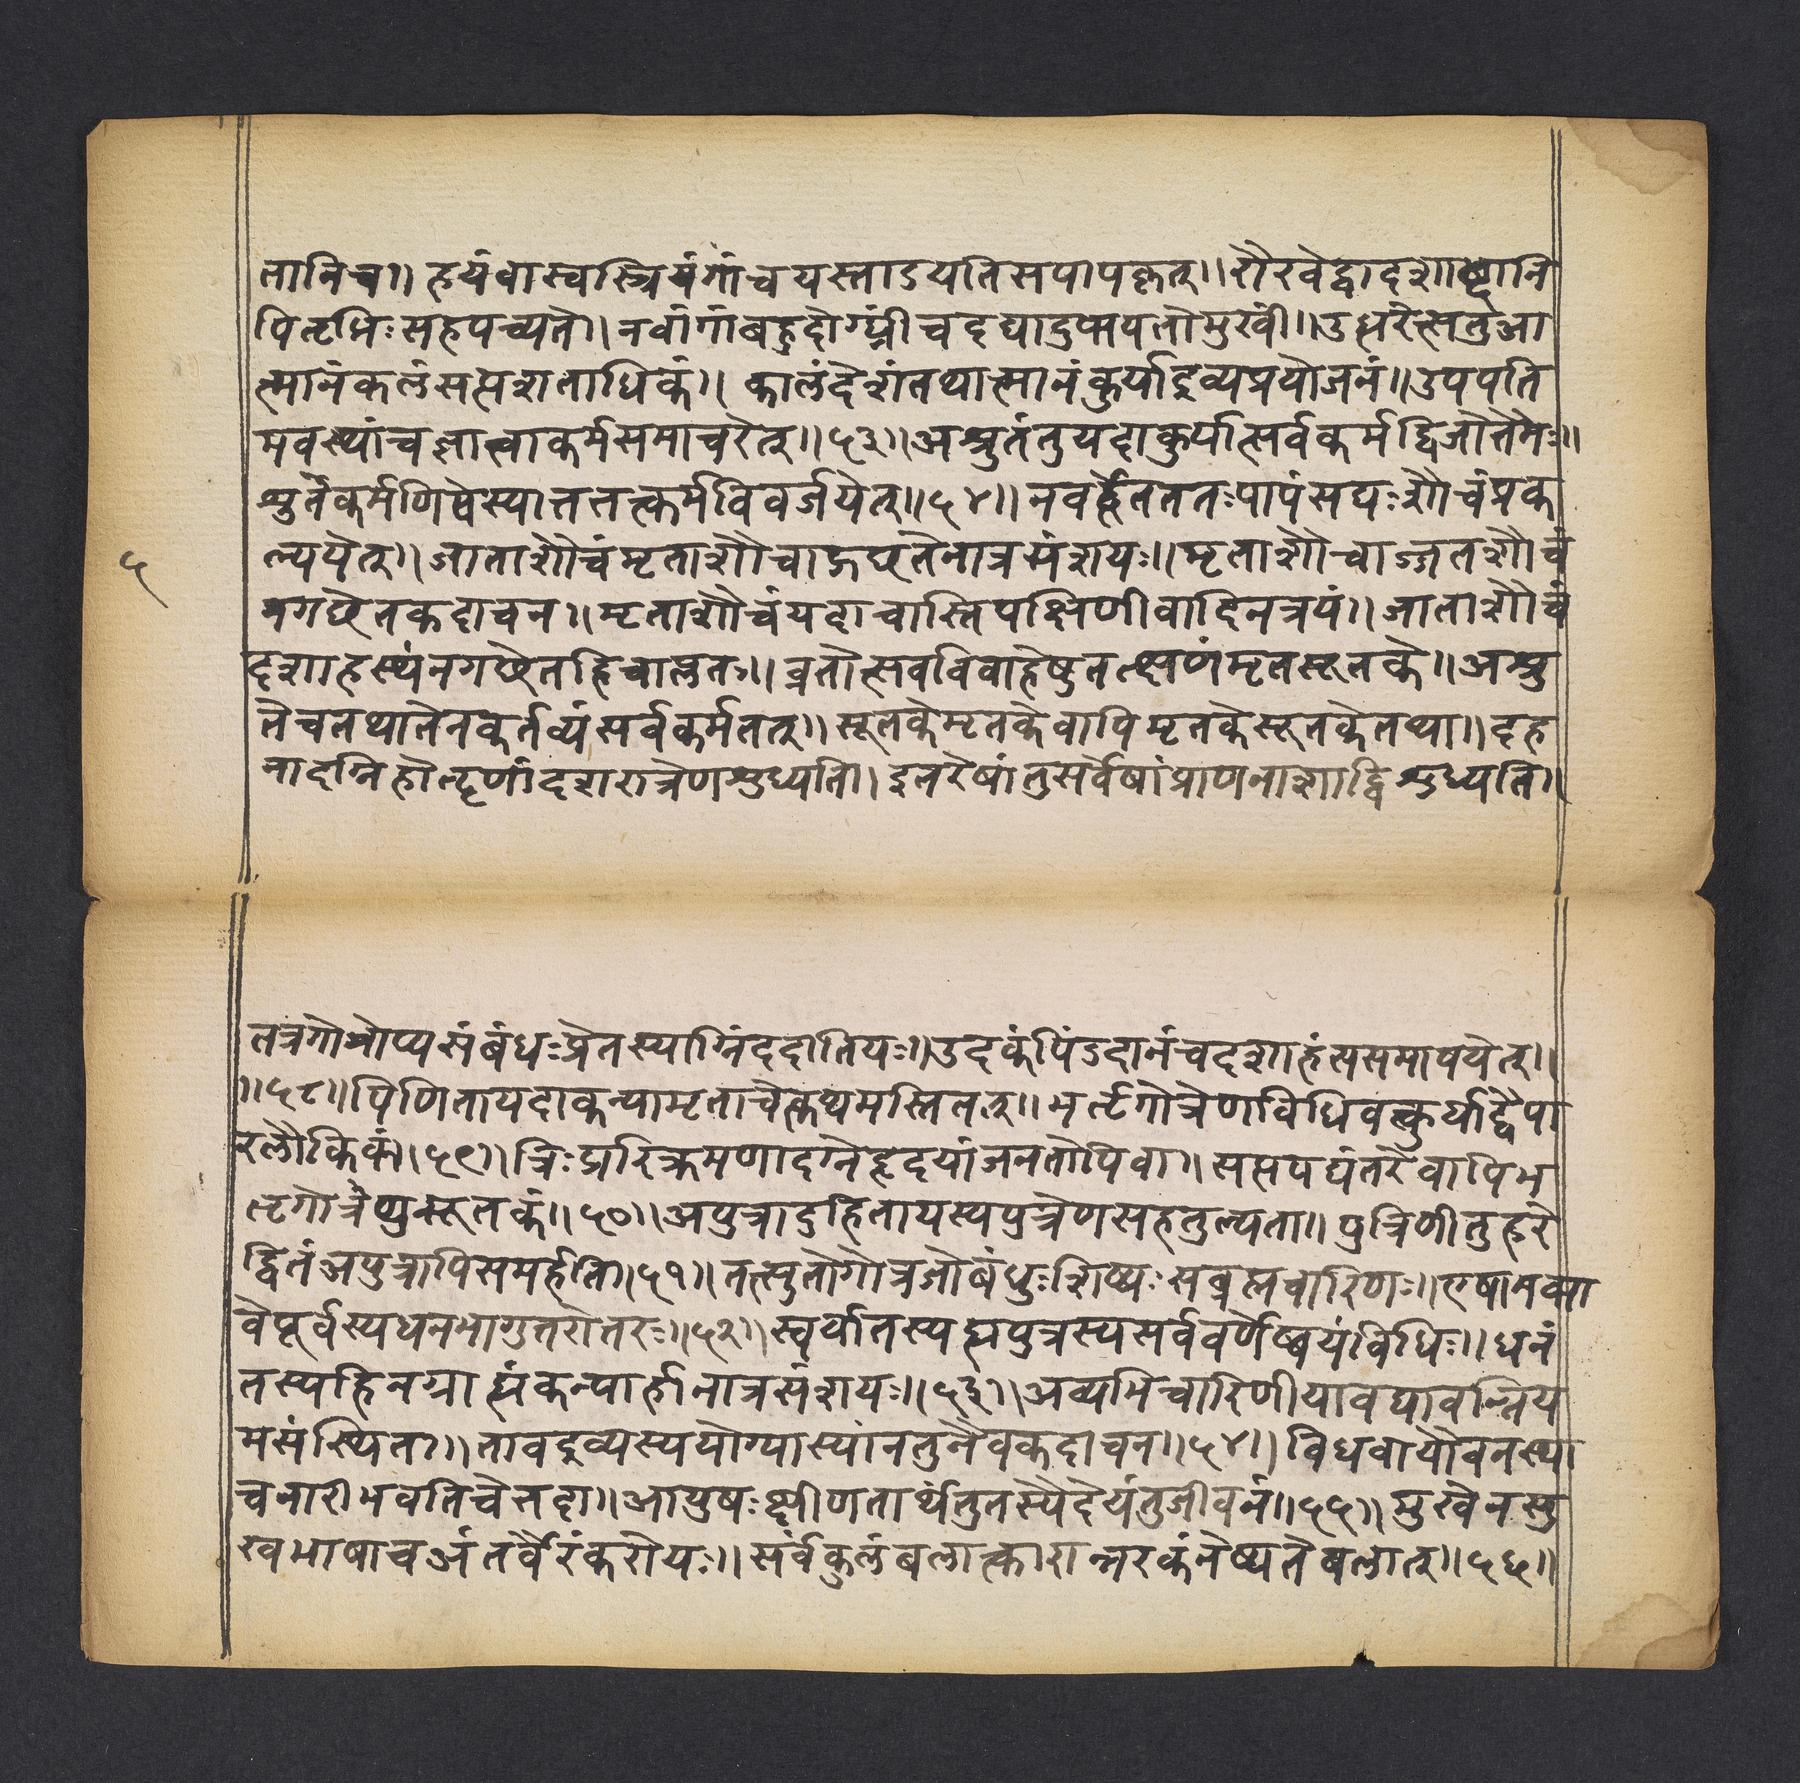 तानिच।। हयंवास्वस्त्रियंगांचयस्ताऽयतिसपापकृत्।। रौरवेद्वादशाब्दानि
पितृभिःसहपच्यते।। नवांगांबहुदोग्ध्रीं चदद्यादुभयतोमुखीं।। उद्धरेत्सतुआ
त्मानंकलंसप्तशताधिकं।। कालंदेशंतथात्मानंकुर्याद्द्रव्यप्रयोजनं।। उपपति
मवस्थांचज्ञात्वाकर्मसमाचरेत्।। ५३।। अश्रुतंतुयदाकुर्यात्सर्वकर्मद्विजोत्तमः।।
श्रुतेकर्मणि स्यात्तत्तत्कर्मविवर्जयेत्।। ५४।। नवर्द्धेतततःपापंसद्यःशौचंप्रक
ल्पयेत्।। जाताशौचंमृताशौचा नात्रसंशयः।। मृताशौचाज्जातशौचं
नगछेतकदाचन।। मृताशौचंयदाचास्तिपक्षिणीवादिनत्रयं।। जाताशौचं
दशाहस्थंनगछेतहि ।। व्रतोत्सवविवाहेषुतत्क्षणंमृतसूतके।। अश्रु
तेचतथातेनकर्तव्यंसर्वकर्मतत्।। सूतकेमृतकेवापिमृतकेसूतकेतथा।। दह
नादग्निहोतॄणांदशरात्रेणशुध्यति।। इतरेषांतुसर्वेषांप्राणनाशाद्विशुध्यति।।
५
तत्रगोत्रोप्यसंबंधःप्रेतस्याग्निंददातियः।। उदकंपिंऽदानंचदशाहंससमापयेत्।।
।। ५८।। पिणितायदाकन्यामृताचेत्कथमस्तितत्।। भर्तृगोत्रेणविधिवत्कुर्याद्वैपा
रलौकिकं।। ५९।। त्रिःप्ररिक्रमणादग्नेहृदयांजनतोपिवा।। सप्तपद्यंतरेवापिभ
र्तृगोत्रेणसूतकं।। ५०।। अपुत्रादुहितायस्यपुत्रेणसहतुल्यता।। पुत्रिणीतुहरे
द्वितंअपुत्रापिसमर्हति।। ५१।। तत्सुतोगोत्रजोबंधुःशिष्यःसब्रह्मचारिणः।। एषामभा
वेपूर्वस्यधनभागुत्तरोतरः।। ५२।। स्वर्यातस्यह्यपुत्रस्यसर्ववर्णेष्वयंविधिः।। धनं
तस्यहिनग्राह्यंकन्यार्हानात्रसंशयः।। ५३।। अव्यभिचारिणीयावद्यावन्नियं
मसंस्थिता।। तावद्द्रव्यस्ययोग्यास्यांनतुनैवकदाचन।। ५४।। विधवायौवनस्था
चनारीभवतिचेत्तदा।। आयुषःक्षीणतार्थंतुतस्यैदेयंतुजीवनं।। ५५।। मुखेनसु
खभाषाचअंतर्वैरंकरोयः।। सर्वंकुलंबलात्कारान्नरकंनेष्यतेबलात्।। ५६।।